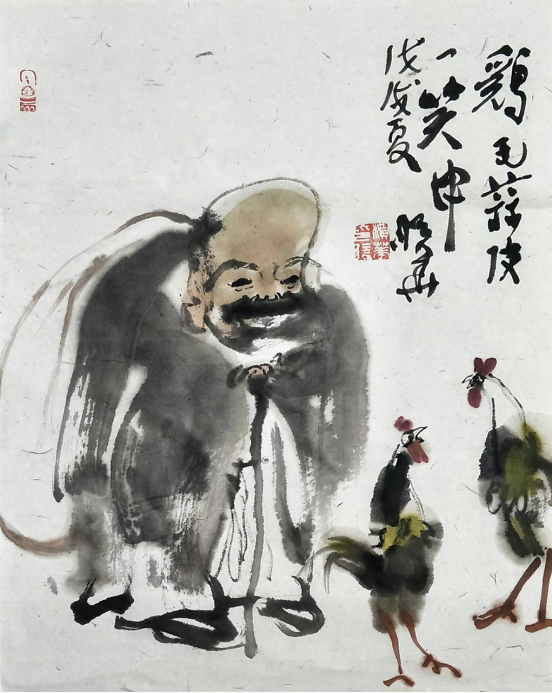 鷄毛蒜皮
一笑中
戊戌夏